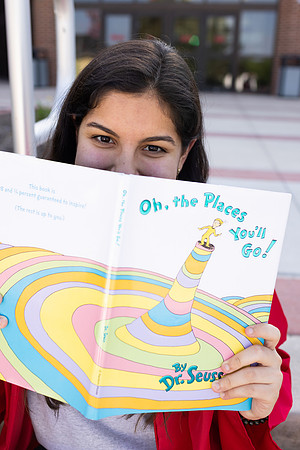 This book is
and ¾ percent guaranteed to inspire!
(The rest is up to you.)
Oh, the Places You'll Go!
Oh, the Places
You'll
Go!
By
Dr. Seuss